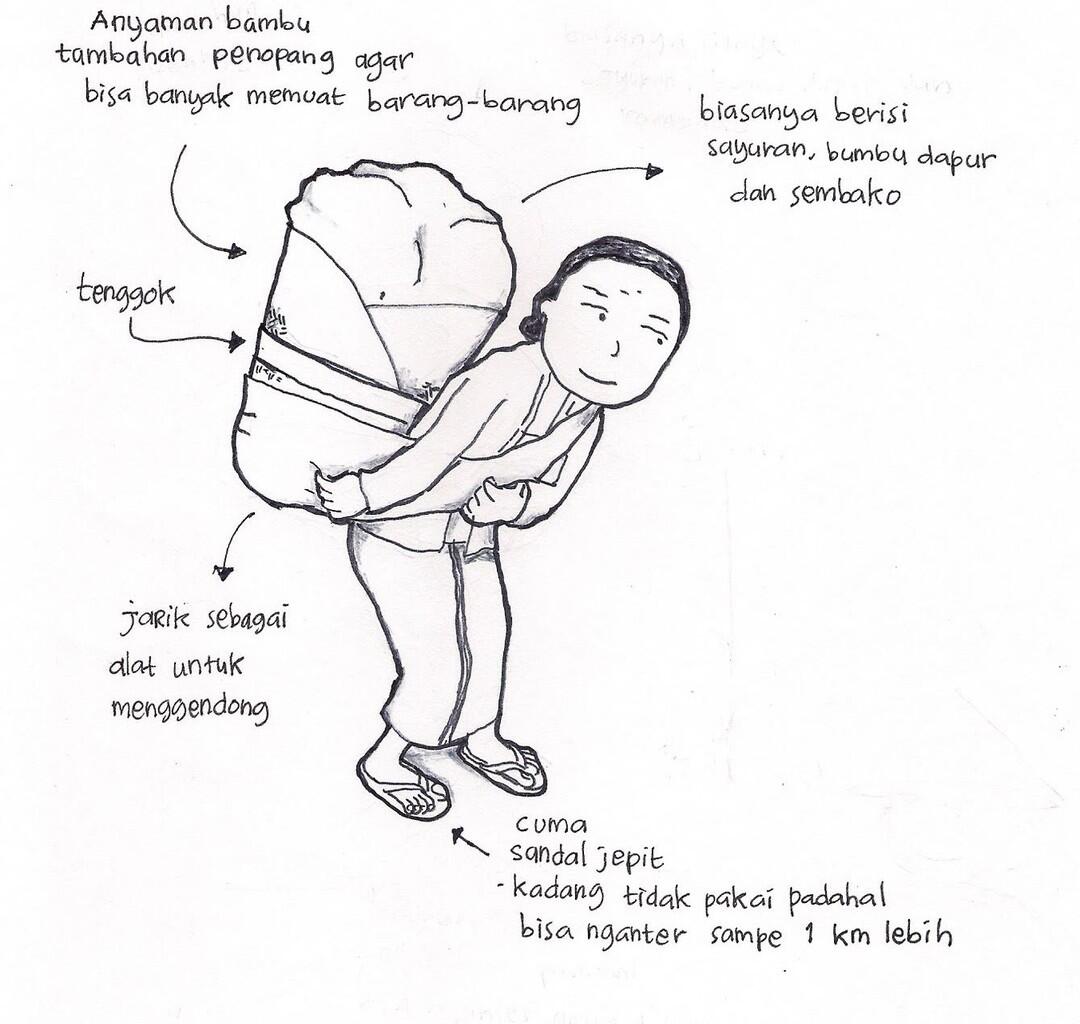 Anyaman bambu
tambahan penopang agar
bisa banyak memuat barang-barang
biasanya berisi
sayuran, bumbu dapur
dan sembako
tenggok
jarik sebagai
alat untuk
menggendong
cuma
sandal jepit
- kadang tidak pakai padahal
bisa nganter sampe 1 km lebih